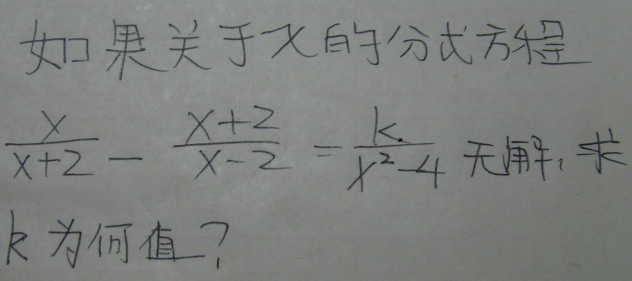 如果关于x的分式方程
x/(x+2) - (x+2)/(x-2) = k/(x²-4) 无解,求
k为何值?